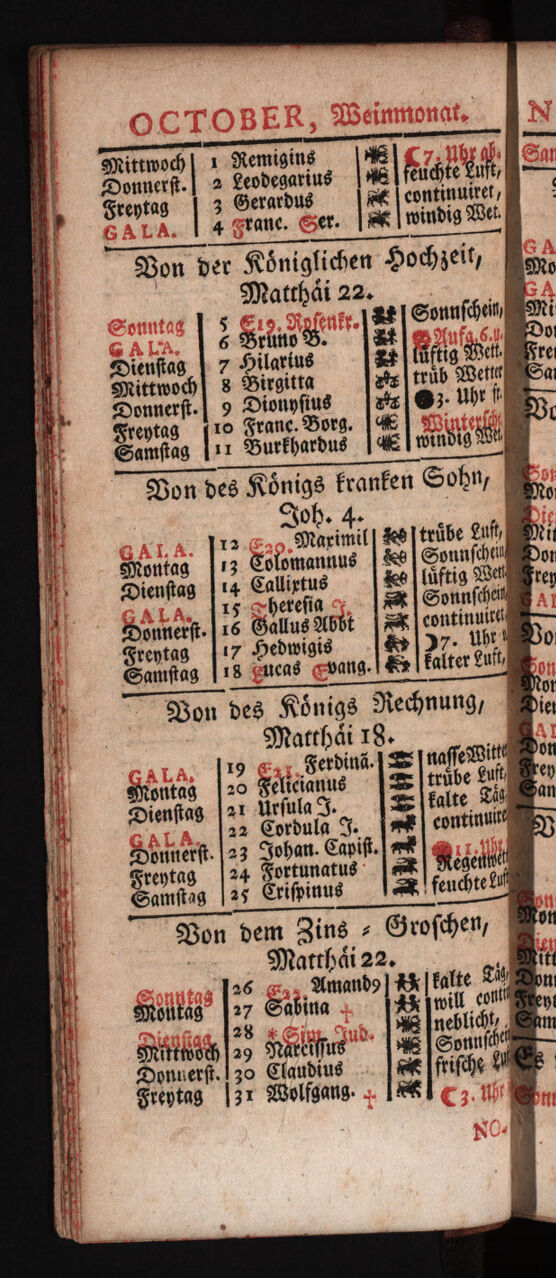 OCTOBER, Weinmonat.
Mittwoch 1 Remigius ☾7. Uhr ab.
Donnerst. 2 Leodegarius feuchte Luft,
Freytag 3 Gerardus continuiret,
GALA. 4 Franc. Ser. windig Wet.
Von der Königlichen Hochzeit,
Matthäi 22.
Sonntag 5 E19. Rosenkr. Sonnschein,
GALA. 6 Bruno B. Aufa. 6. u.
Dienstag 7 Hilarius lüftig Wett.
Mittwoch 8 Birgitta trüb Wetter
Donnerst. 9 Dionysius 3. Uhr fr.
Freytag 10 Franc. Borg. Wintersch.
Samstag 11 Burkhardus windig Wet.
Von des Königs kranken Sohn,
Joh. 4.
GALA. 12 E20. Maximil trübe Luft,
Montag 13 Colomannus Sonnschein,
Dienstag 14 Callixtus lüftig Wett.
GALA. 15 Theresia J. Sonnschein
Donnerst. 16 Gallus Abbt continuiret
Freytag 17 Hedwigis ☽7. Uhr
Samstag 18 Lucas Evang. kalter Luft,
Von des Königs Rechnung,
Matthäi 18.
GALA. 19 E21. Ferdinã. nasse Witte
Montag 20 Felicianus trübe Luft,
Dienstag 21 Ursula J. kalte Täg
GALA. 22 Cordula J. continuire
Donnerst. 23 Johan. Capist. 11. Uhr
Freytag 24 Fortunatus Regenwett
Samstag 25 Crispinus feuchte Luft
Von dem Zins ⸗ Groschen,
Matthäi 22.
Sonntag 26 E22. Amand9 kalte Täg,
Montag 27 Sabina ┼ will conti
Dienstag 28 * Sim. Jud. neblicht,
Mittwoch 29 Narcissus Sonnschei
Donnerst. 30 Claudius frische Lu
Freytag 31 Wolfgang. ┼ ☾3. Uhr
NO⸗